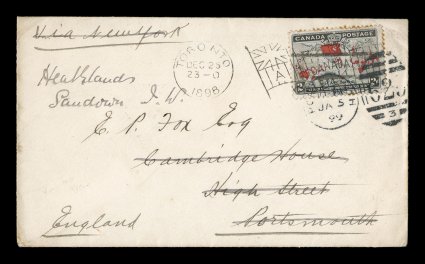 Via Newyork
TORONTO
DEC 25
23-0
1898
CANADA POSTAGE
Heathlands
Sandown I.W.
E. P. Fox Esq
Cambridge House
High Street
Portsmouth
England
JA 5
99
3